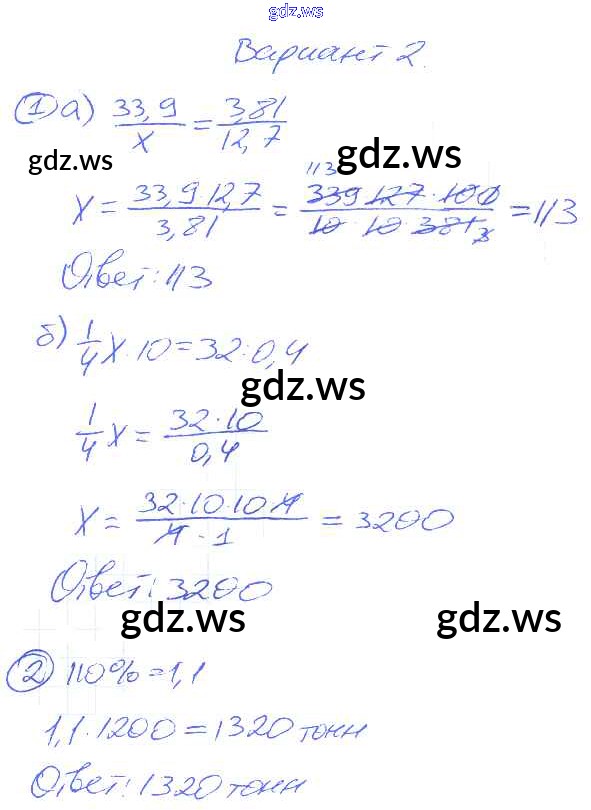 gdz.ws
Вариант 2.
1 а) 33,9/x = 3,81/12,7
gdz.ws
gdz.ws
x = 33,9 12,7/3,81 = 339 127·100/10·10·381 = 113
113
3
Ответ: 113
б) 1/4 x·10=32:0,4
gdz.ws
1/4 x = 32·10/0,4
x = 32·10·10·4/4·1 = 3200
Ответ: 3200
gdz.ws
gdz.ws
2 110%=1,1
1,1·1200=1320 тонн
Ответ: 1320 тонн